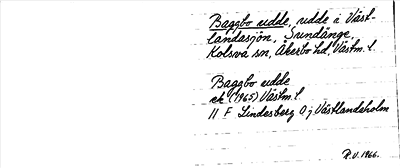 Baggbo udde, udde i Väst-
landasjön, Sundänge,
Kolsva sn, Åkerbo hd, Västm. l.
Baggbo udde
ek (1965) Västm. l.
11 F Lindesberg 0 j Västlandaholm
R.V. 1966.